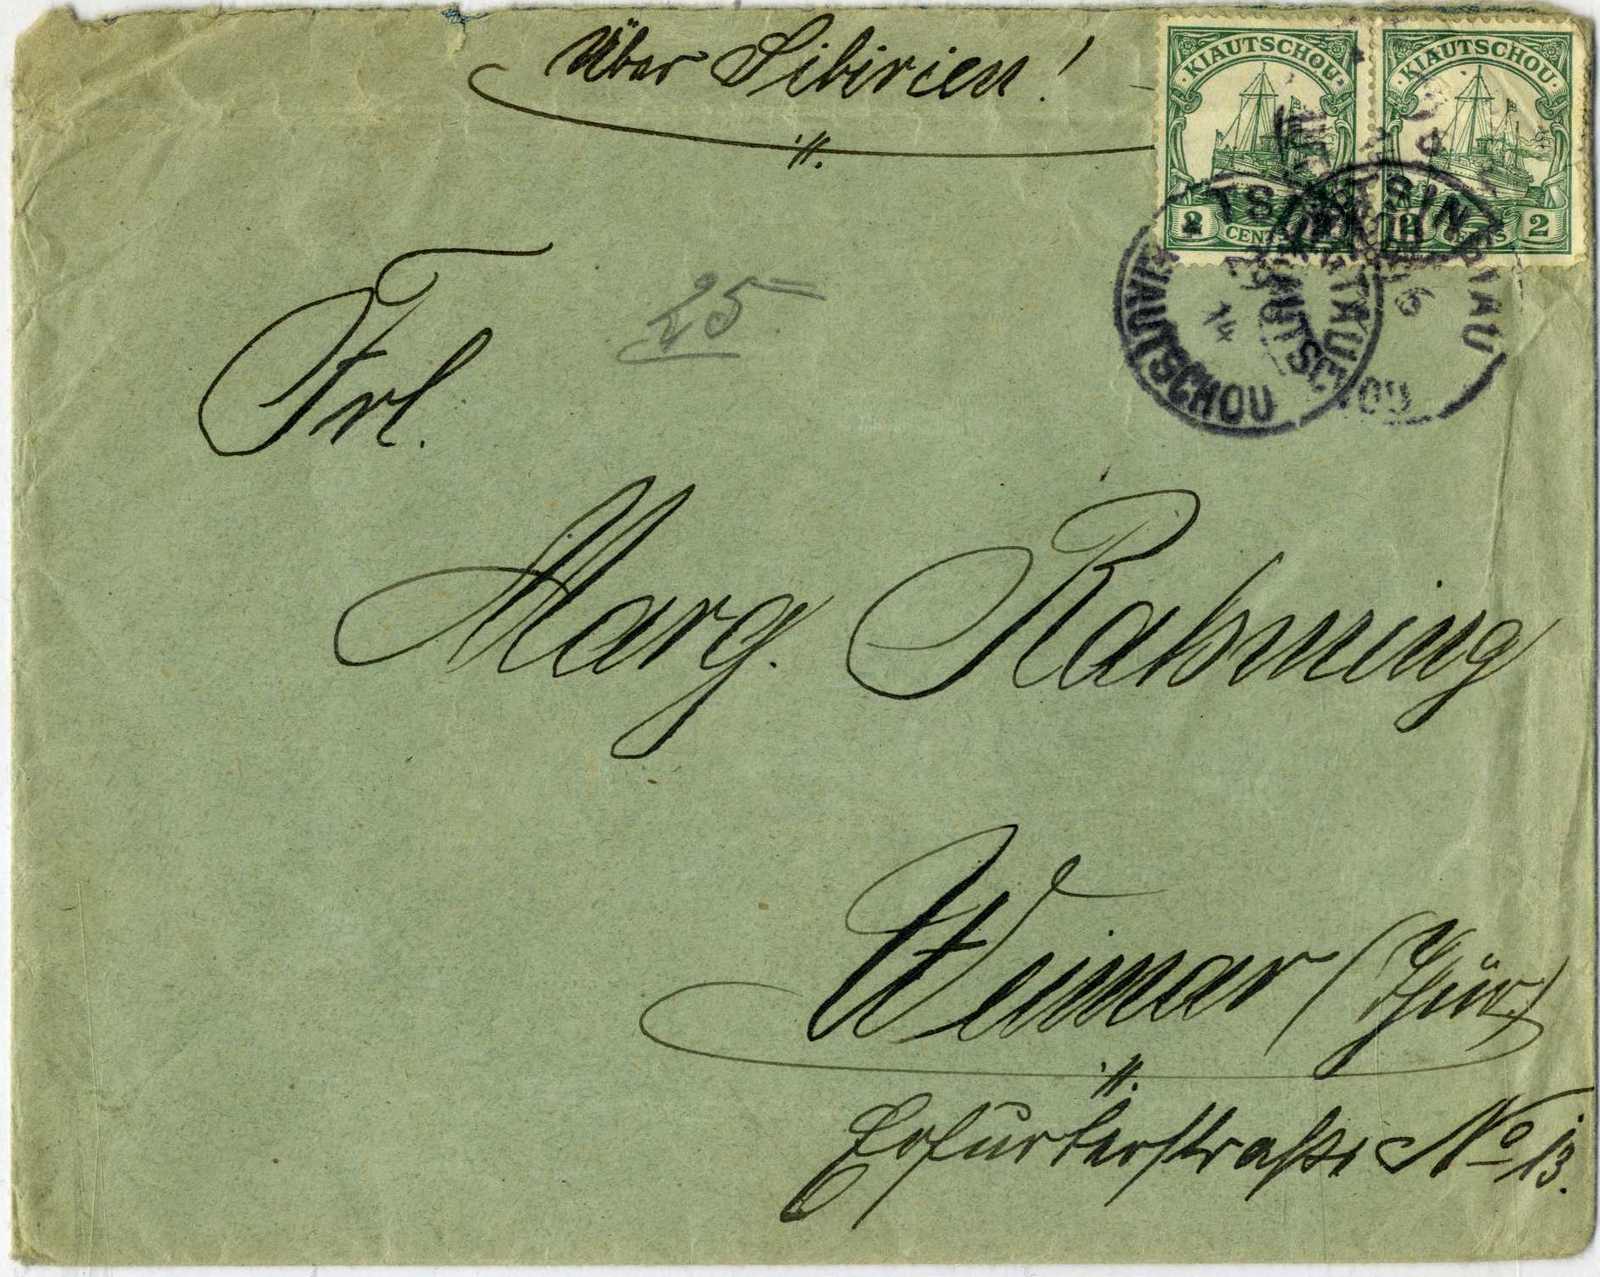 Über Sibirien!
KIAUTSCHOU KIAUTSCHOU
2 CENTS 2 CENTS 2
TSINGTAU
KIAUTSCHOU
TSINGTAU
KIAUTSCHOU
25
Frl.
Marg. Rahming
Weimar (Thür.)
Erfurterstraße No 13.